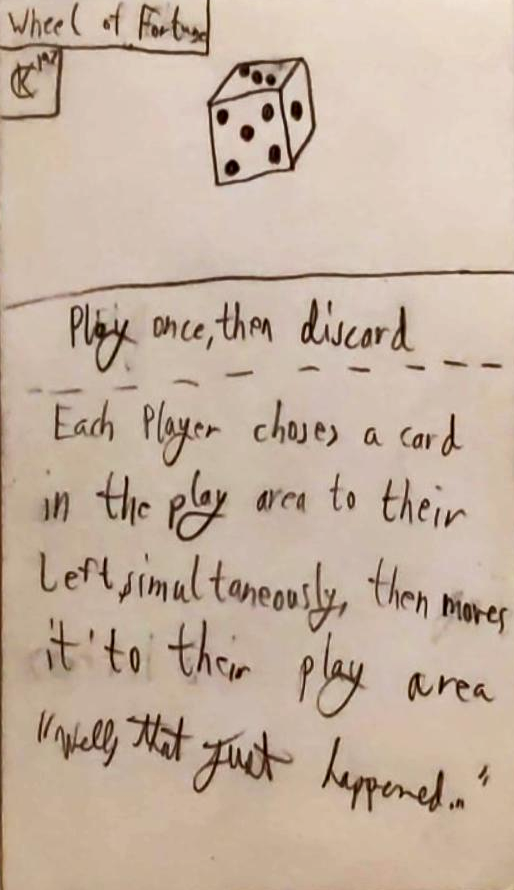 Wheel of Fortune
Play once, then discard
Each Player choses a card
in the play area to their
Left, simultaneously, then moves
it to their play area
"Well, that just happened..."